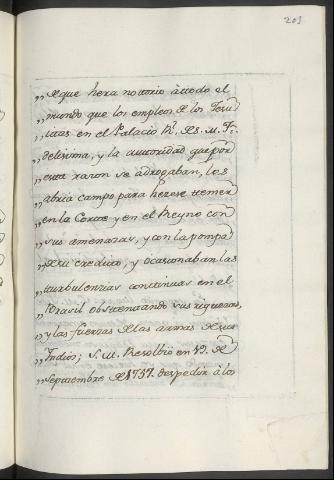 203
„ de que hera notorio à todo el
„ mundo que los empleos de los Jesu
„ itas en el Palacio Rl. de S. M. Fi
„ delisima, y la autoridad que por
„ esta razon se adrogaban, les
„ abria campo para hacese temer
„ en la Corte y en el Reyno con
„ sus amenazas, y con la pompa
„ de su credito, y ocasionaban las
„ turbulencias continuas en el
„ Brasil obstentando sus riquezas,
„ y las fuerzas de las armas de sus
„ Indios; S. M. Resolbiò en 19. de
„ Septiembre de 1757. despedir à los